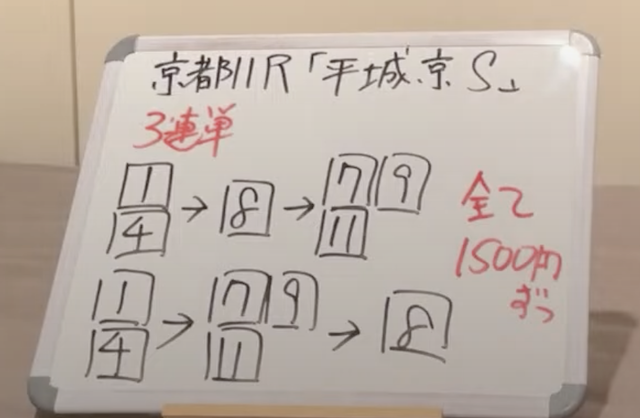 京都11R「平城京S」
3連単
1 4 → 8 → 7 9 11
全て
1500円
ずつ
1 4 → 7 9 11 → 8